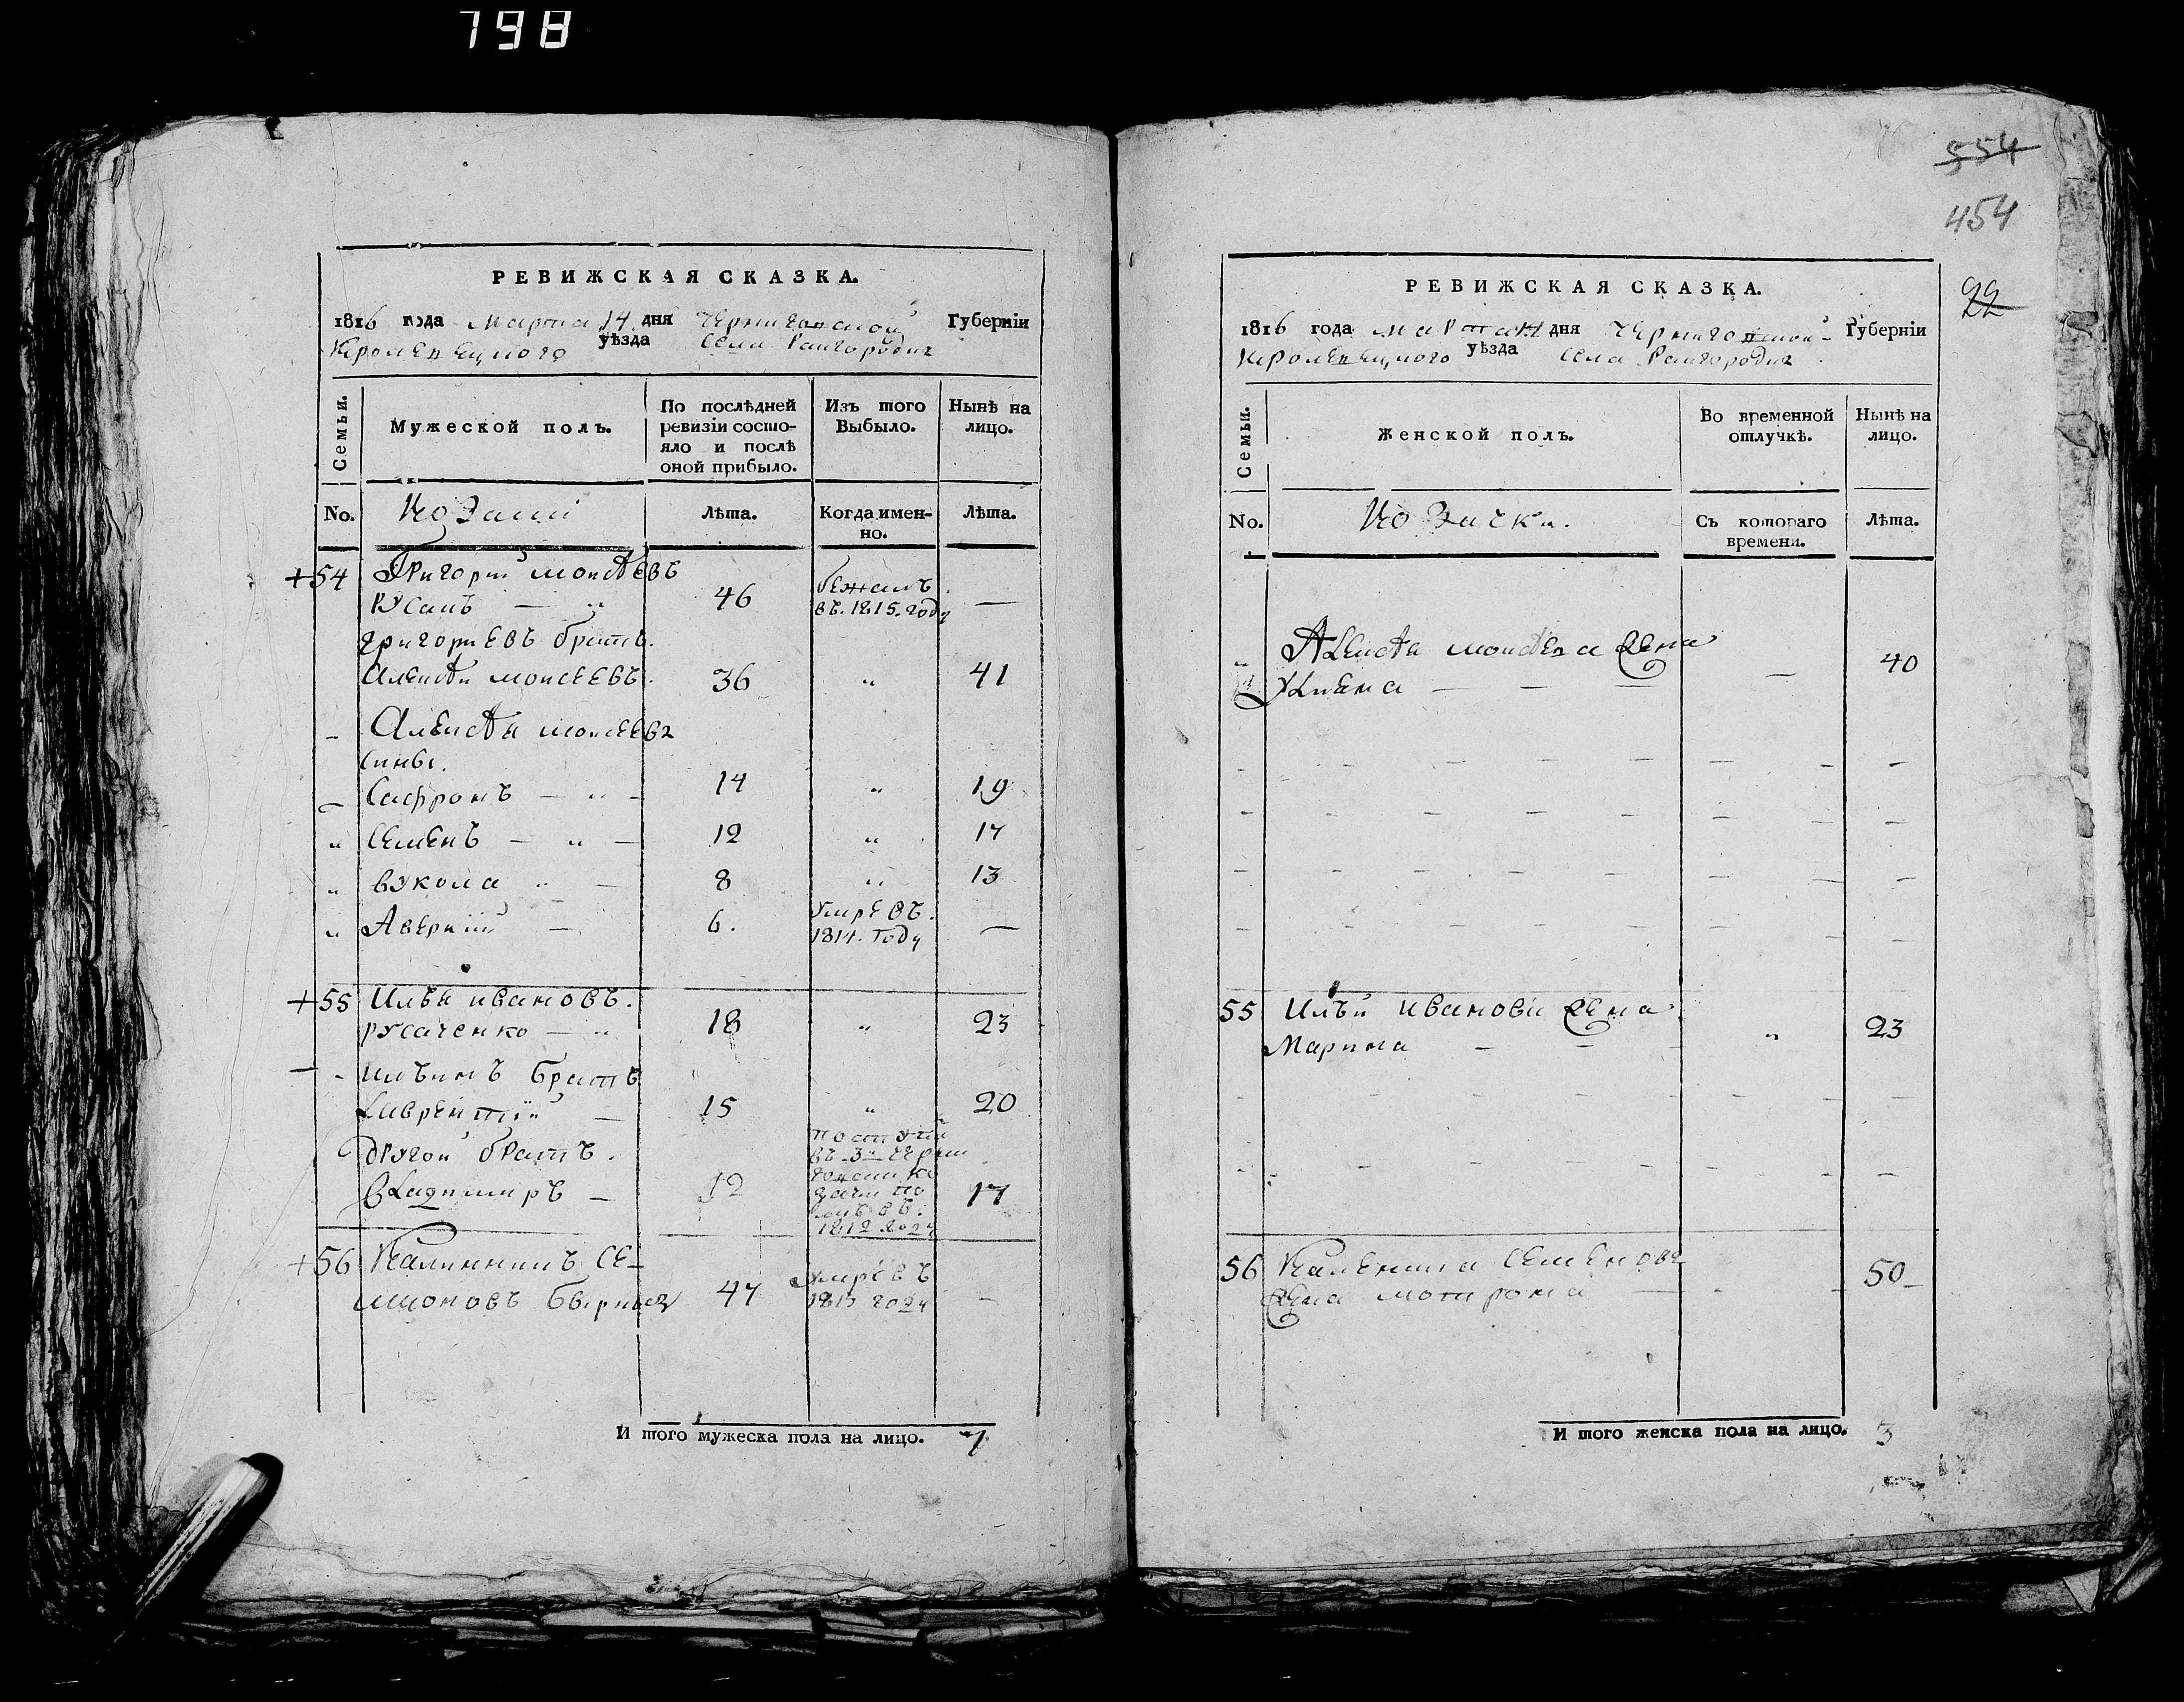 798
РЕВИЖСКАЯ СКАЗКА.
1816 года Марта 14 дня Черниговской Губерніи
Кролевецкого уѣзда Села Райгородка
Семьи.
Мужеской полъ.
По послѣдней ревизіи состо-
яло и послѣ
оной прибыло.
Изъ того
Выбыло.
Нынѣ на
лицо.
No.
Козаки
Лѣта.
Когда имен-
но.
Лѣта.
+54 Григорій Моисѣевъ
Русакъ — 46 Бежалъ
въ 1815. году —
Григориевъ братъ.
Алексѣй Моисеевъ. 36 „ 41
Алексѣя Моисеева
сины.
Сафронъ — „ — 14 „ 19
Семенъ — „ — 12 „ 17
Вукола „ — 8 „ 13
Аверкій — 6. Умре въ
1814. году —
+55 Илья Ивановъ.
Русаченко — „ 18 „ 23
Ильинъ братъ
Лаврентій — 15 „ 20
другой братъ.
Владимиръ — 12
въ 3й
1812 году 17
+56 Калинникъ Се-
мионовъ 47 Умре въ
году —
И того мужеска пола на лицо. 7
554
454
22
РЕВИЖСКАЯ СКАЗКА.
1816 года Марта 14 дня Черниговской Губерніи
Кролевецкого уѣзда Села Райгородка
Семьи.
Женской полъ.
Во временной
отлучкѣ.
Нынѣ на
лицо.
No.
Козачки.
Съ котораго
времени.
Лѣта.
Алексѣя Моисѣева жена
Улиена — — — 40
55 Ильи Иванова жена
Марина — — „ 23
56 Каленика Семенова
жена Мотрона — 50
И того женска пола на лицо. 3